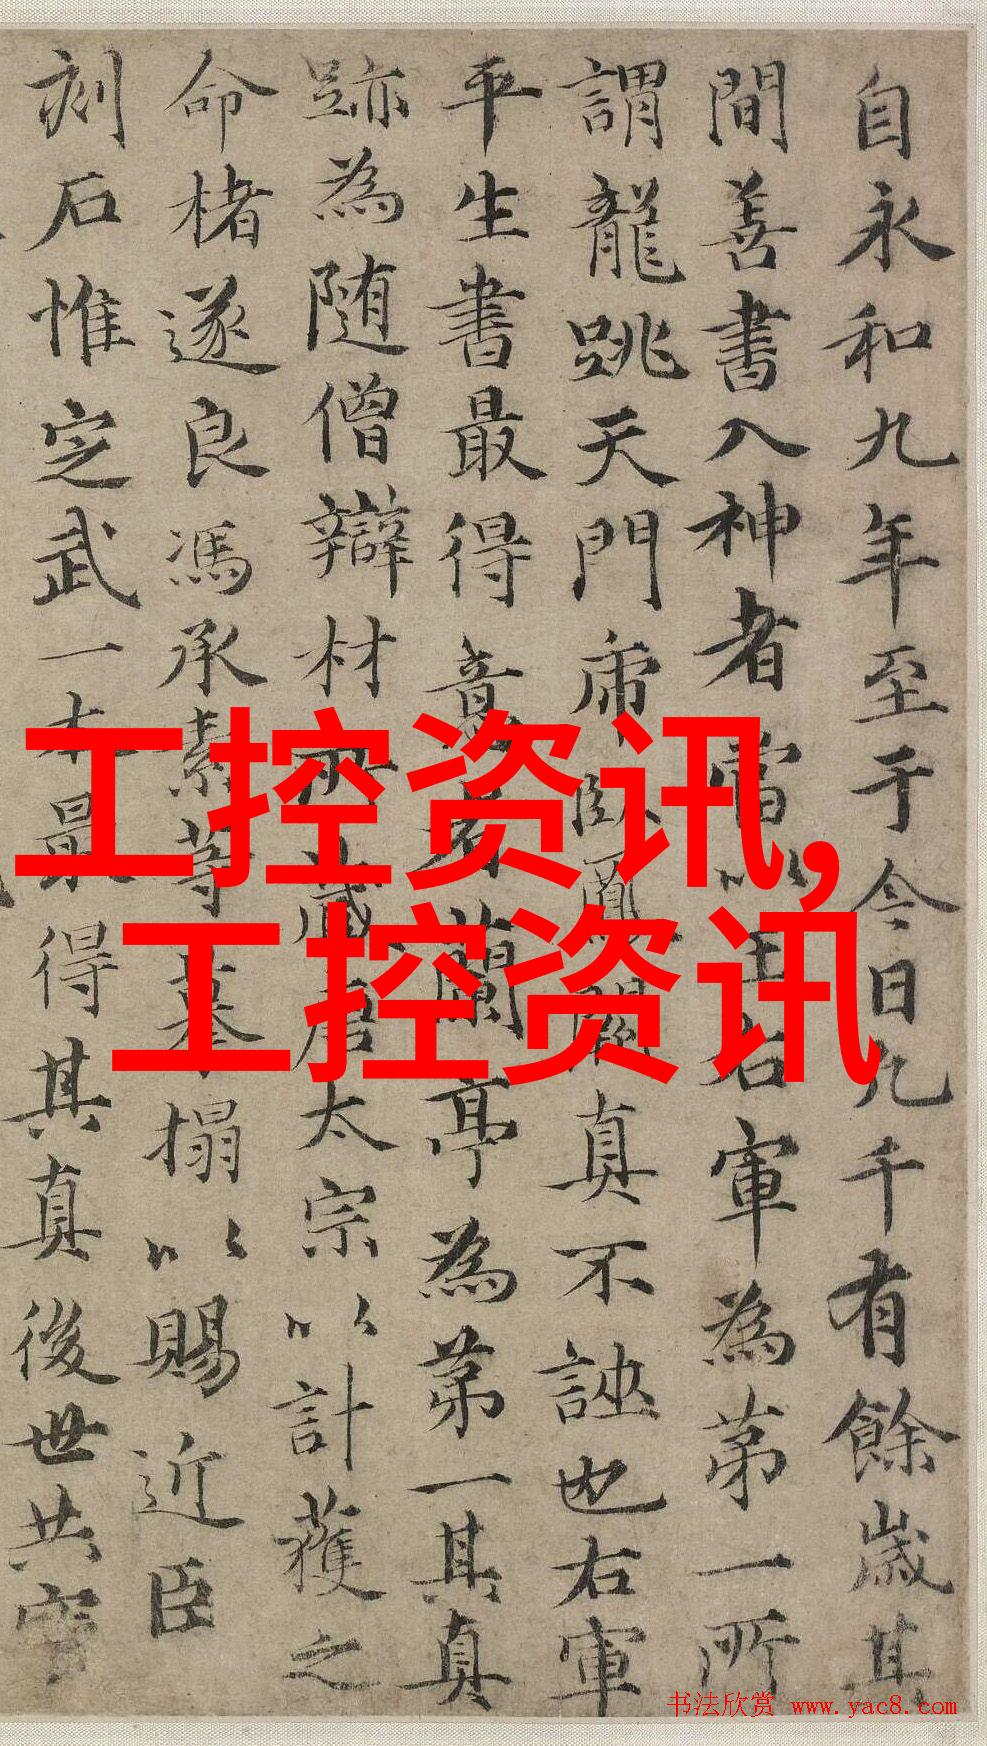 自永和九年至于今日凡千有餘歲其
間善書入神者當以王右軍為第一所
謂龍跳天門虎臥鳳閣真不誣也右軍
平生書最得意者蘭亭為第一其真
跡為随僧辯材所藏唐太宗以計獲之
命楮遂良馮承素等摹搨以賜近臣
刻石惟定武一本最得其真後世共寶
工控资讯,
工控资讯
书法欣赏 www.yac8.com